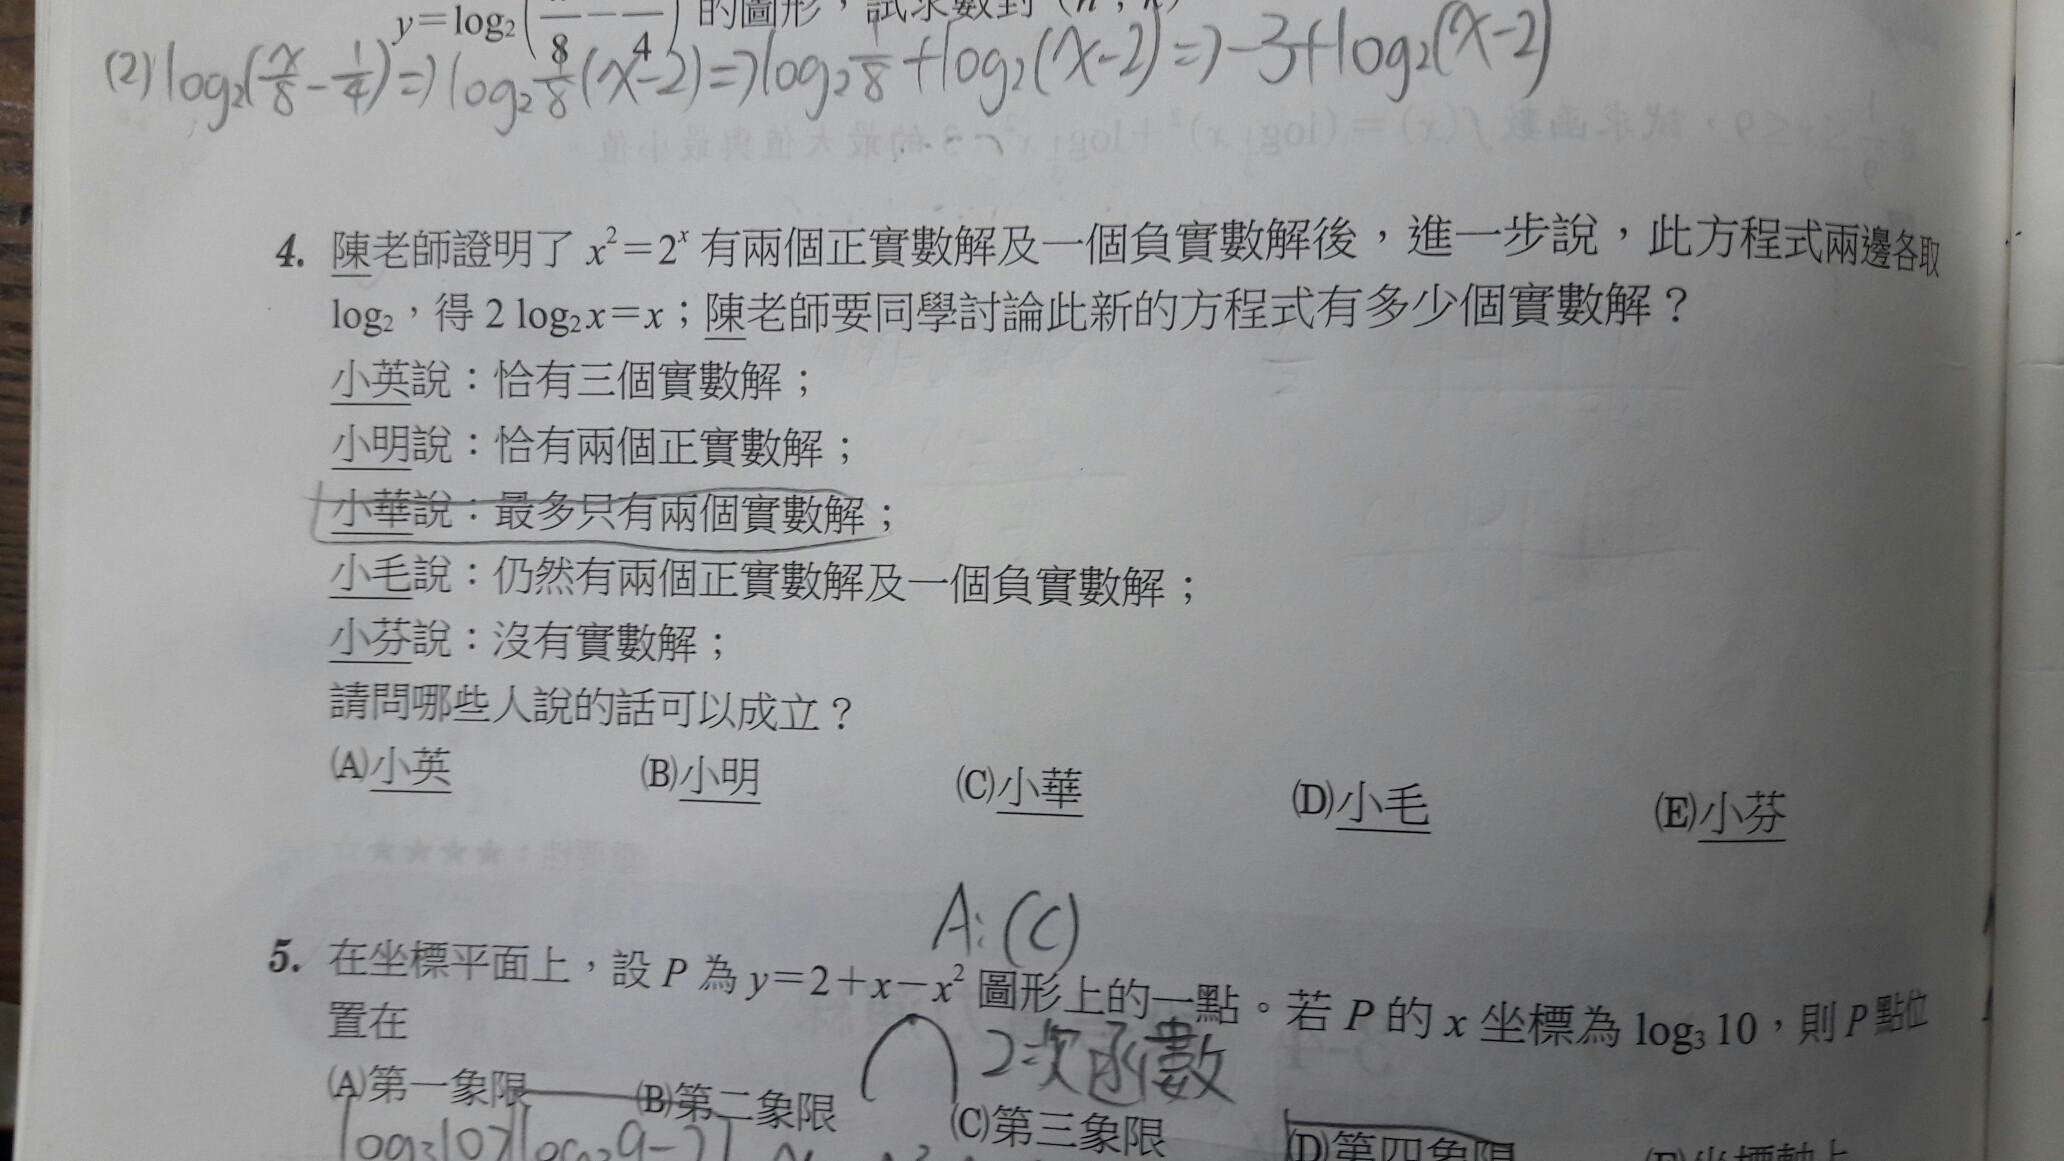 y=log₂( /8 − /4 ) 的圖形，試求數對
(2) log₂(x/8 − 1/4) => log₂ 1/8 (x−2) => log₂ 1/8 + log₂(x−2) => −3 + log₂(x−2)
4. 陳老師證明了 x²=2ˣ 有兩個正實數解及一個負實數解後，進一步說，此方程式兩邊各取
log₂，得 2 log₂x=x；陳老師要同學討論此新的方程式有多少個實數解？
小英說：恰有三個實數解；
小明說：恰有兩個正實數解；
小華說：最多只有兩個實數解；
小毛說：仍然有兩個正實數解及一個負實數解；
小芬說：沒有實數解；
請問哪些人說的話可以成立？
(A)小英 (B)小明 (C)小華 (D)小毛 (E)小芬
A:(C)
5. 在坐標平面上，設 P 為 y=2+x−x² 圖形上的一點。若 P 的 x 坐標為 log₃10，則 P 點位
置在
2次函數
(A)第一象限 (B)第二象限 (C)第三象限 (D)第四象限 (E)坐標軸上